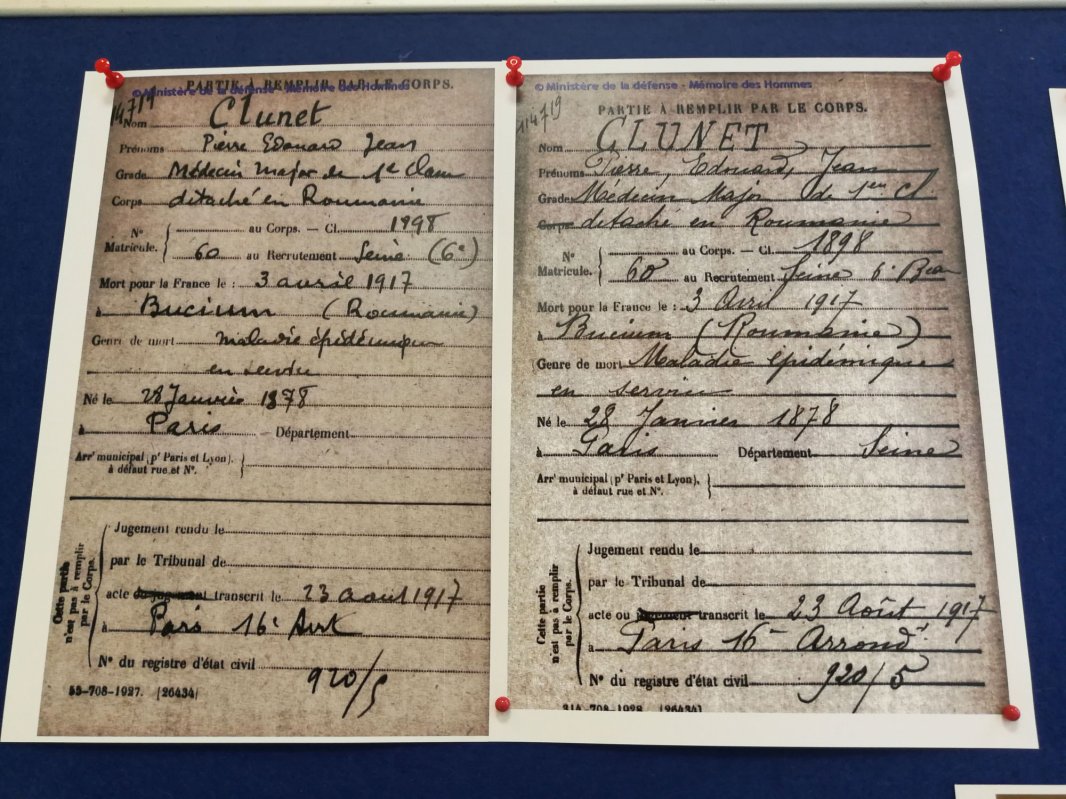 PARTIE À REMPLIR PAR LE CORPS.
© Ministère de la défense - Mémoire des Hommes
14719
Nom Clunet
Prénoms Pierre Edouard Jean
Grade Médecin Major de 1e Classe
Corps détaché en Roumanie
N° Matricule. { au Corps. — Cl. 1898
60 au Recrutement Seine (6e)
Mort pour la France le : 3 avril 1917
à Bucium (Roumanie)
Genre de mort maladie épidémique
en service
Né le 28 Janvier 1878
à Paris Département
Arrt municipal (pr Paris et Lyon), à défaut rue et N°. {
Cette partie n'est pas à remplir par le Corps.
Jugement rendu le
par le Tribunal de
acte ou jugement transcrit le 23 aout 1917
à Paris 16e Arrt
N° du registre d'état civil
920/5
53-708-1927. [26434]
© Ministère de la défense - Mémoire des Hommes
PARTIE À REMPLIR PAR LE CORPS.
14719
Nom CLUNET
Prénoms Pierre, Edouard, Jean
Grade Médecin Major de 1er Cl
Corps détaché en Roumanie
N° Matricule. { au Corps. — Cl. 1898
60 au Recrutement Seine 6e Beau
Mort pour la France le : 3 Avril 1917
à Bucium (Roumanie)
Genre de mort Maladie épidémique
en service
Né le 28 Janvier 1878
à Paris Département Seine
Arrt municipal (pr Paris et Lyon), à défaut rue et N°. {
Cette partie n'est pas à remplir par le Corps.
Jugement rendu le
par le Tribunal de
acte ou jugement transcrit le 23 Août 1917
à Paris 16e Arrondt
N° du registre d'état civil 920/5
314-708-1928. [26434]